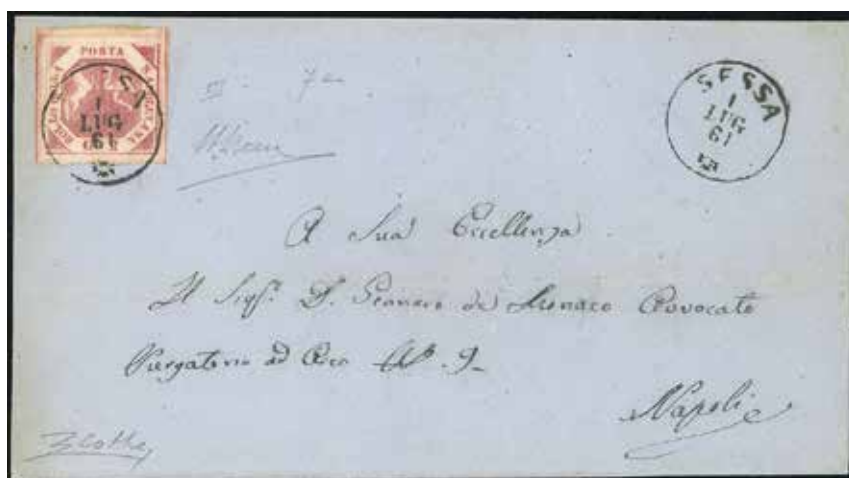 PORTA
SESSA
1
LUG
61
SESSA
1
LUG
61
A Sua Eccellenza
Il Sigr. D. Gennaro de Monaco Avvocato
Purgatorio ad Arco No. 9
Napoli